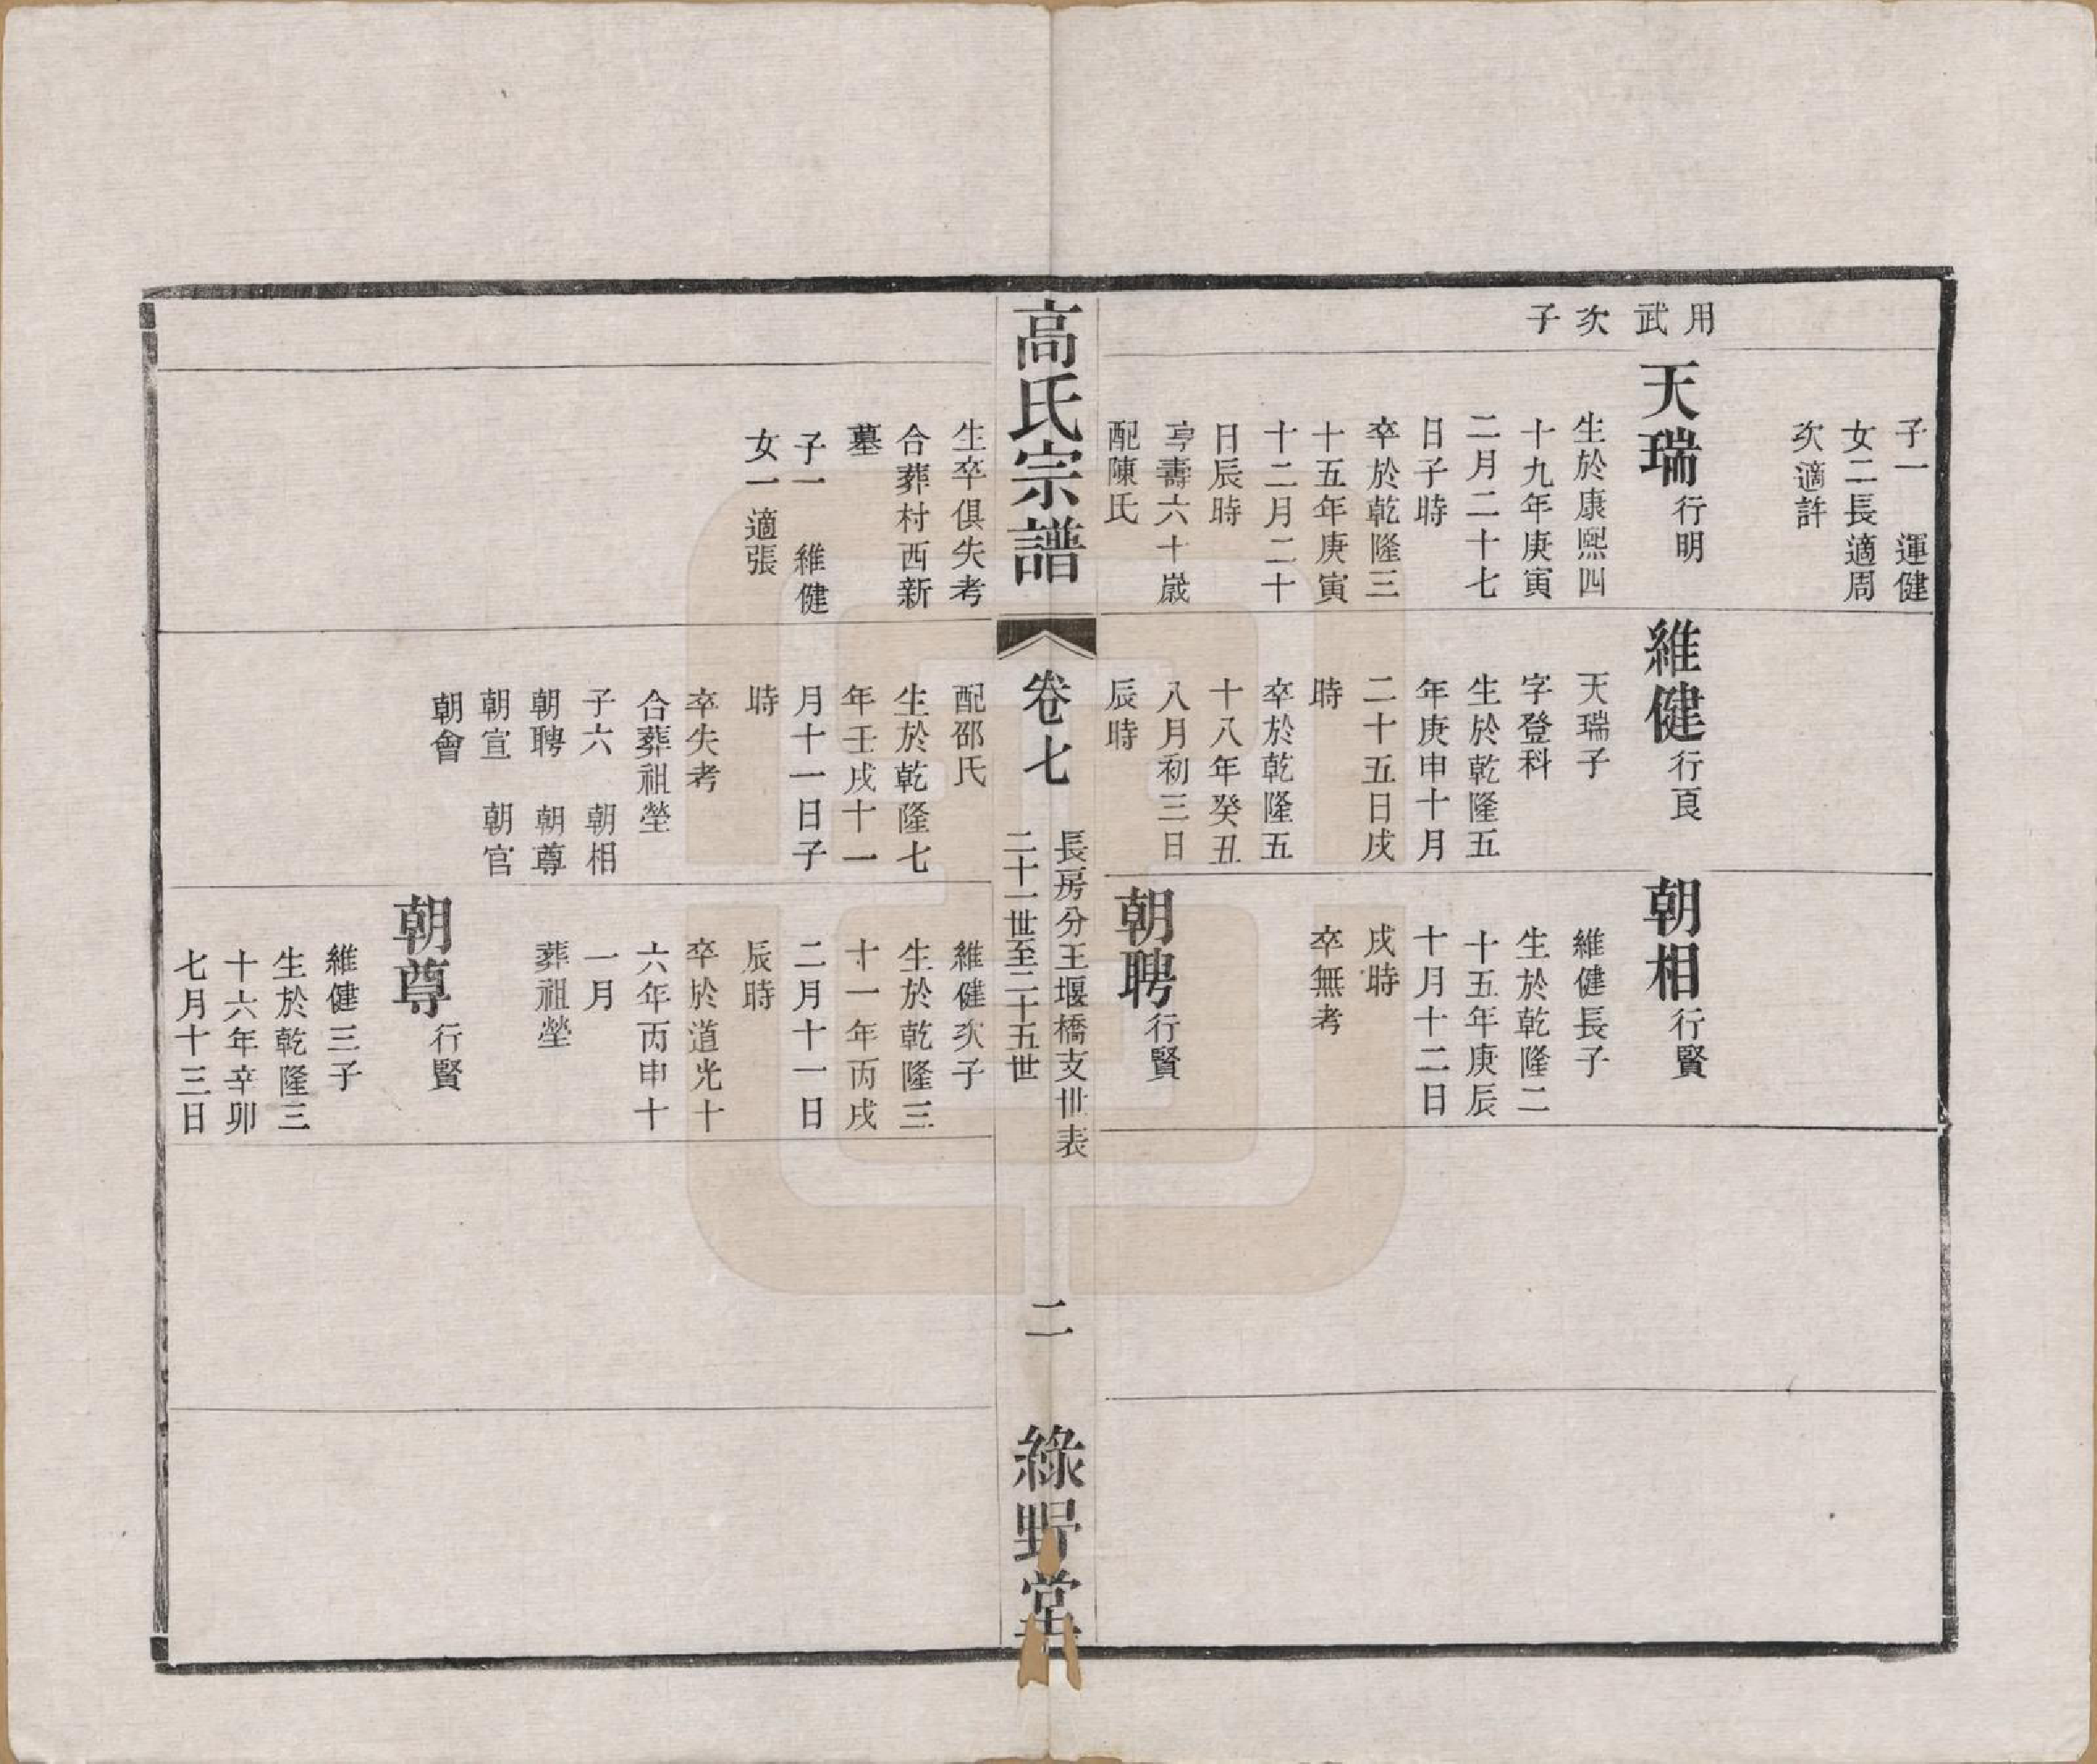 用武次子
子一　運健
女二長適周
次適許
天瑞行明
生於康熙四
十九年庚寅
二月二十七
日子時
卒於乾隆三
十五年庚寅
十二月二十
日辰時
享壽六十歲
配陳氏
維健行良
天瑞子
字登科
生於乾隆五
年庚申十月
二十五日戌
時
卒於乾隆五
十八年癸丑
八月初三日
辰時
朝相行賢
維健長子
生於乾隆二
十五年庚辰
十月十二日
戌時
卒無考
朝聘行賢
高氏宗譜
卷七
長房分王堰橋支世表
二十一世至二十五世
二
綠野堂
生卒俱失考
合葬村西新
墓
子一　維健
女一適張
配邵氏
生於乾隆七
年壬戌十一
月十一日子
時
卒失考
合葬祖塋
子六　朝相
朝聘　朝尊
朝宣　朝官
朝會
維健次子
生於乾隆三
十一年丙戌
二月十一日
辰時
卒於道光十
六年丙申十
一月
葬祖塋
朝尊行賢
維健三子
生於乾隆三
十六年辛卯
七月十三日